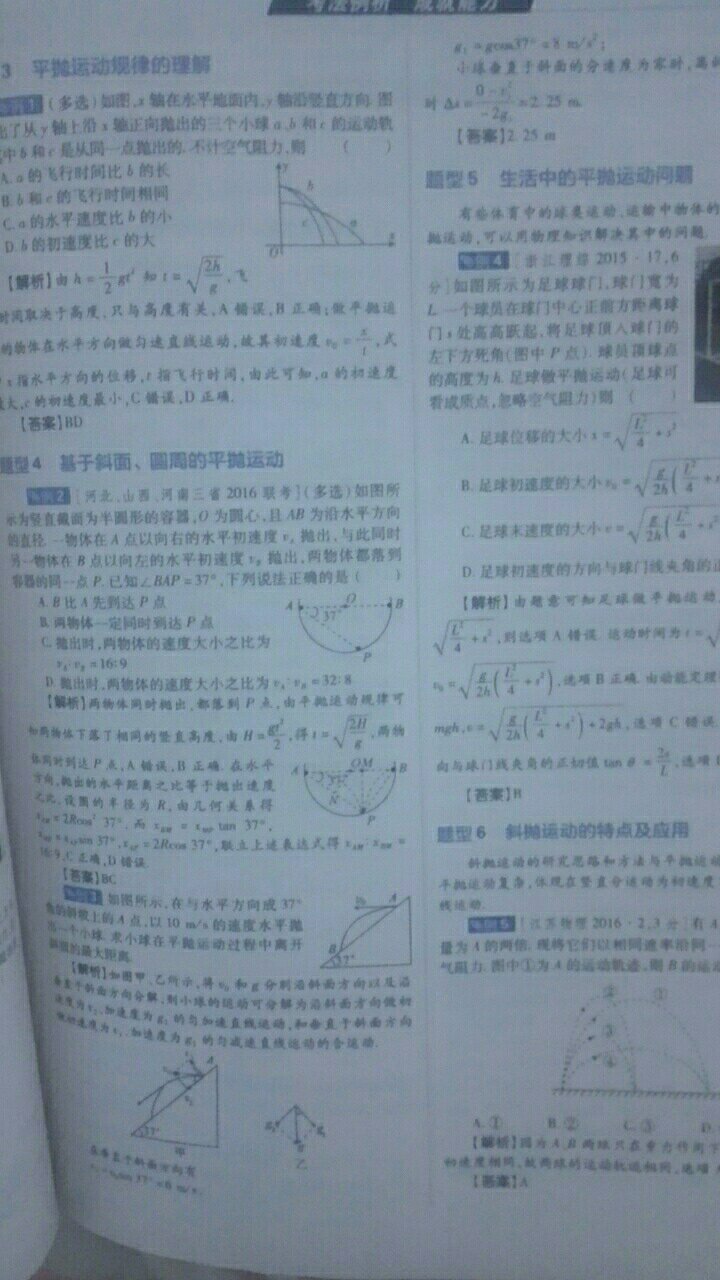 考法例析 成就能力
3 平抛运动规律的理解
例1 (多选)如图,x轴在水平地面内,y轴沿竖直方向.图
出了从y轴上沿x轴正向抛出的三个小球a、b和c的运动轨
中b和c是从同一点抛出的.不计空气阻力,则 ( )
A.a的飞行时间比b的长
B.b和c的飞行时间相同
C.a的水平速度比b的小
D.b的初速度比c的大
y
b
c
a
O
x
【解析】由h=1/2gt²知t=√(2h/g),飞
时间取决于高度,只与高度有关,A错误,B正确;做平抛运
的物体在水平方向做匀速直线运动,故其初速度v₀=x/t,式
x指水平方向的位移,t指飞行时间,由此可知,a的初速度
大,c的初速度最小,C错误,D正确.
【答案】BD
题型4 基于斜面、圆周的平抛运动
例2 [河北、山西、河南三省2016联考](多选)如图所
示为竖直截面为半圆形的容器,O为圆心,且AB为沿水平方向
的直径.一物体在A点以向右的水平初速度vA抛出,与此同时
另一物体在B点以向左的水平初速度vB抛出,两物体都落到
容器的同一点P.已知∠BAP=37°,下列说法正确的是( )
A.B比A先到达P点
B.两物体一定同时到达P点
C.抛出时,两物体的速度大小之比为
vA:vB=16:9
D.抛出时,两物体的速度大小之比为vA:vB=32:8
A O B
37°
P
【解析】两物体同时抛出,都落到P点,由平抛运动规律可
知两物体下落了相同的竖直高度,由H=gt²/2,得t=√(2H/g),两物
体同时到达P点,A错误,B正确.在水平
方向,抛出的水平距离之比等于抛出速度
之比,设圆的半径为R,由几何关系得
xAM=2Rcos²37°,而xBM=xMP tan 37°,
xMP=xAP sin 37°,xAP=2Rcos 37°,联立上述表达式得xAM:xBM=
16:9,C正确,D错误.
A OM B
37°
N
P
【答案】BC
例3 如图所示,在与水平方向成37°
角的斜坡上的A点,以10 m/s的速度水平抛
出一个小球,求小球在平抛运动过程中离开
斜面的最大距离.
v₀ A
B
37°
【解析】如图甲、乙所示,将v₀和g分别沿斜面方向以及沿
垂直于斜面方向分解,则小球的运动可分解为沿斜面方向做初
速度为v₂、加速度为g₂的匀加速直线运动,和垂直于斜面方向
做初速度为v₁、加速度为g₁的匀减速直线运动的合运动.
A
37°
甲
g₂ g₁
乙
在垂直于斜面方向有
v₁=v₀sin 37°=6 m/s,
g₁=gcos37°=8 m/s²;
小球垂直于斜面的分速度为零时,离斜
时Δs=(0-v₁²)/(-2g₁)=2.25 m.
【答案】2.25 m
题型5 生活中的平抛运动问题
有些体育中的球类运动、运输中物体的
抛运动,可以用物理知识解决其中的问题.
例4 [浙江理综2015·17,6
分]如图所示为足球球门,球门宽为
L.一个球员在球门中心正前方距离球
门s处高高跃起,将足球顶入球门的
左下方死角(图中P点).球员顶球点
的高度为h.足球做平抛运动(足球可
看成质点,忽略空气阻力)则 ( )
A.足球位移的大小x=√(L²/4+s²)
B.足球初速度的大小v₀=√(g/2h(L²/4+s
C.足球末速度的大小v=√(g/2h(L²/4+s
D.足球初速度的方向与球门线夹角的正
【解析】由题意可知足球做平抛运动,
√(L²/4+s²),则选项A错误.运动时间为t=√
v₀=√(g/2h(L²/4+s²)),选项B正确.由动能定理
mgh,v=√(g/2h(L²/4+s²)+2gh),选项C错误
向与球门线夹角的正切值tan θ=2s/L,选项
【答案】B
题型6 斜抛运动的特点及应用
斜抛运动的研究思路和方法与平抛运动
平抛运动复杂,体现在竖直分运动为初速度
线运动.
例5 [江苏物理2016·2,3分]有A
量为A的两倍.现将它们以相同速率沿同一
气阻力.图中①为A的运动轨迹,则B的运动
② ①
③
④
A.① B.② C.③ D.
【解析】因为A、B两球只在重力作用下
初速度相同,故两球的运动轨迹相同,选项A
【答案】A